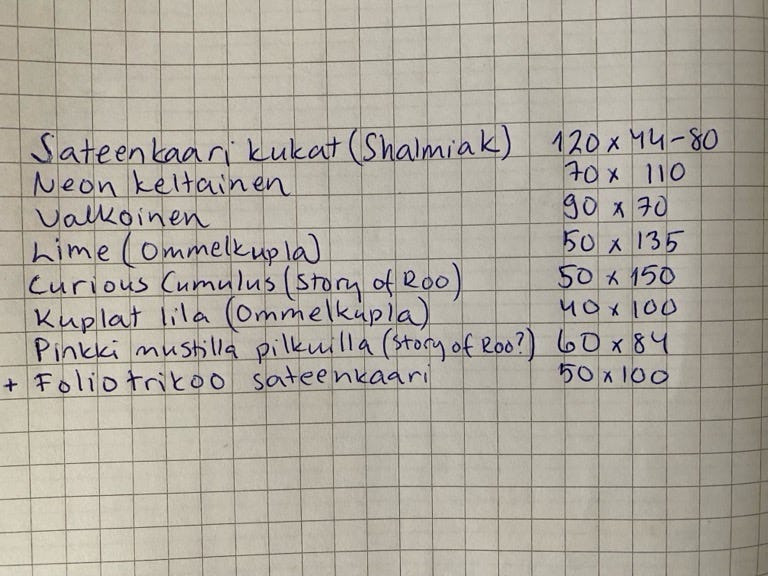 Sateenkaari kukat (Shalmiak) 120 x 44-80
Neon keltainen 70 x 110
Valkoinen 90 x 70
Lime (Ommelkupla) 50 x 135
Curious Cumulus (Story of Roo) 50 x 150
Kuplat lila (Ommelkupla) 40 x 100
Pinkki mustilla pilkuilla (Story of Roo?) 60 x 84
+ Foliotrikoo sateenkaari 50 x 100